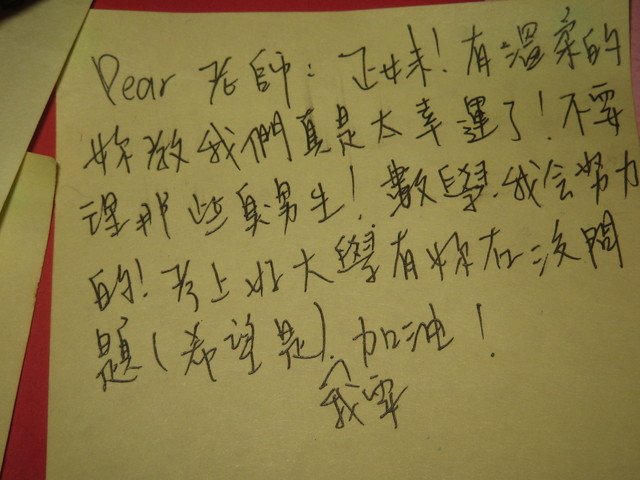 Dear 老師：正妹！有溫柔的
妳教我們真是太幸運了！不要
理那些臭男生！數學.我会努力
的！考上好大學有妳在沒問
題(希望是).加油！
我要